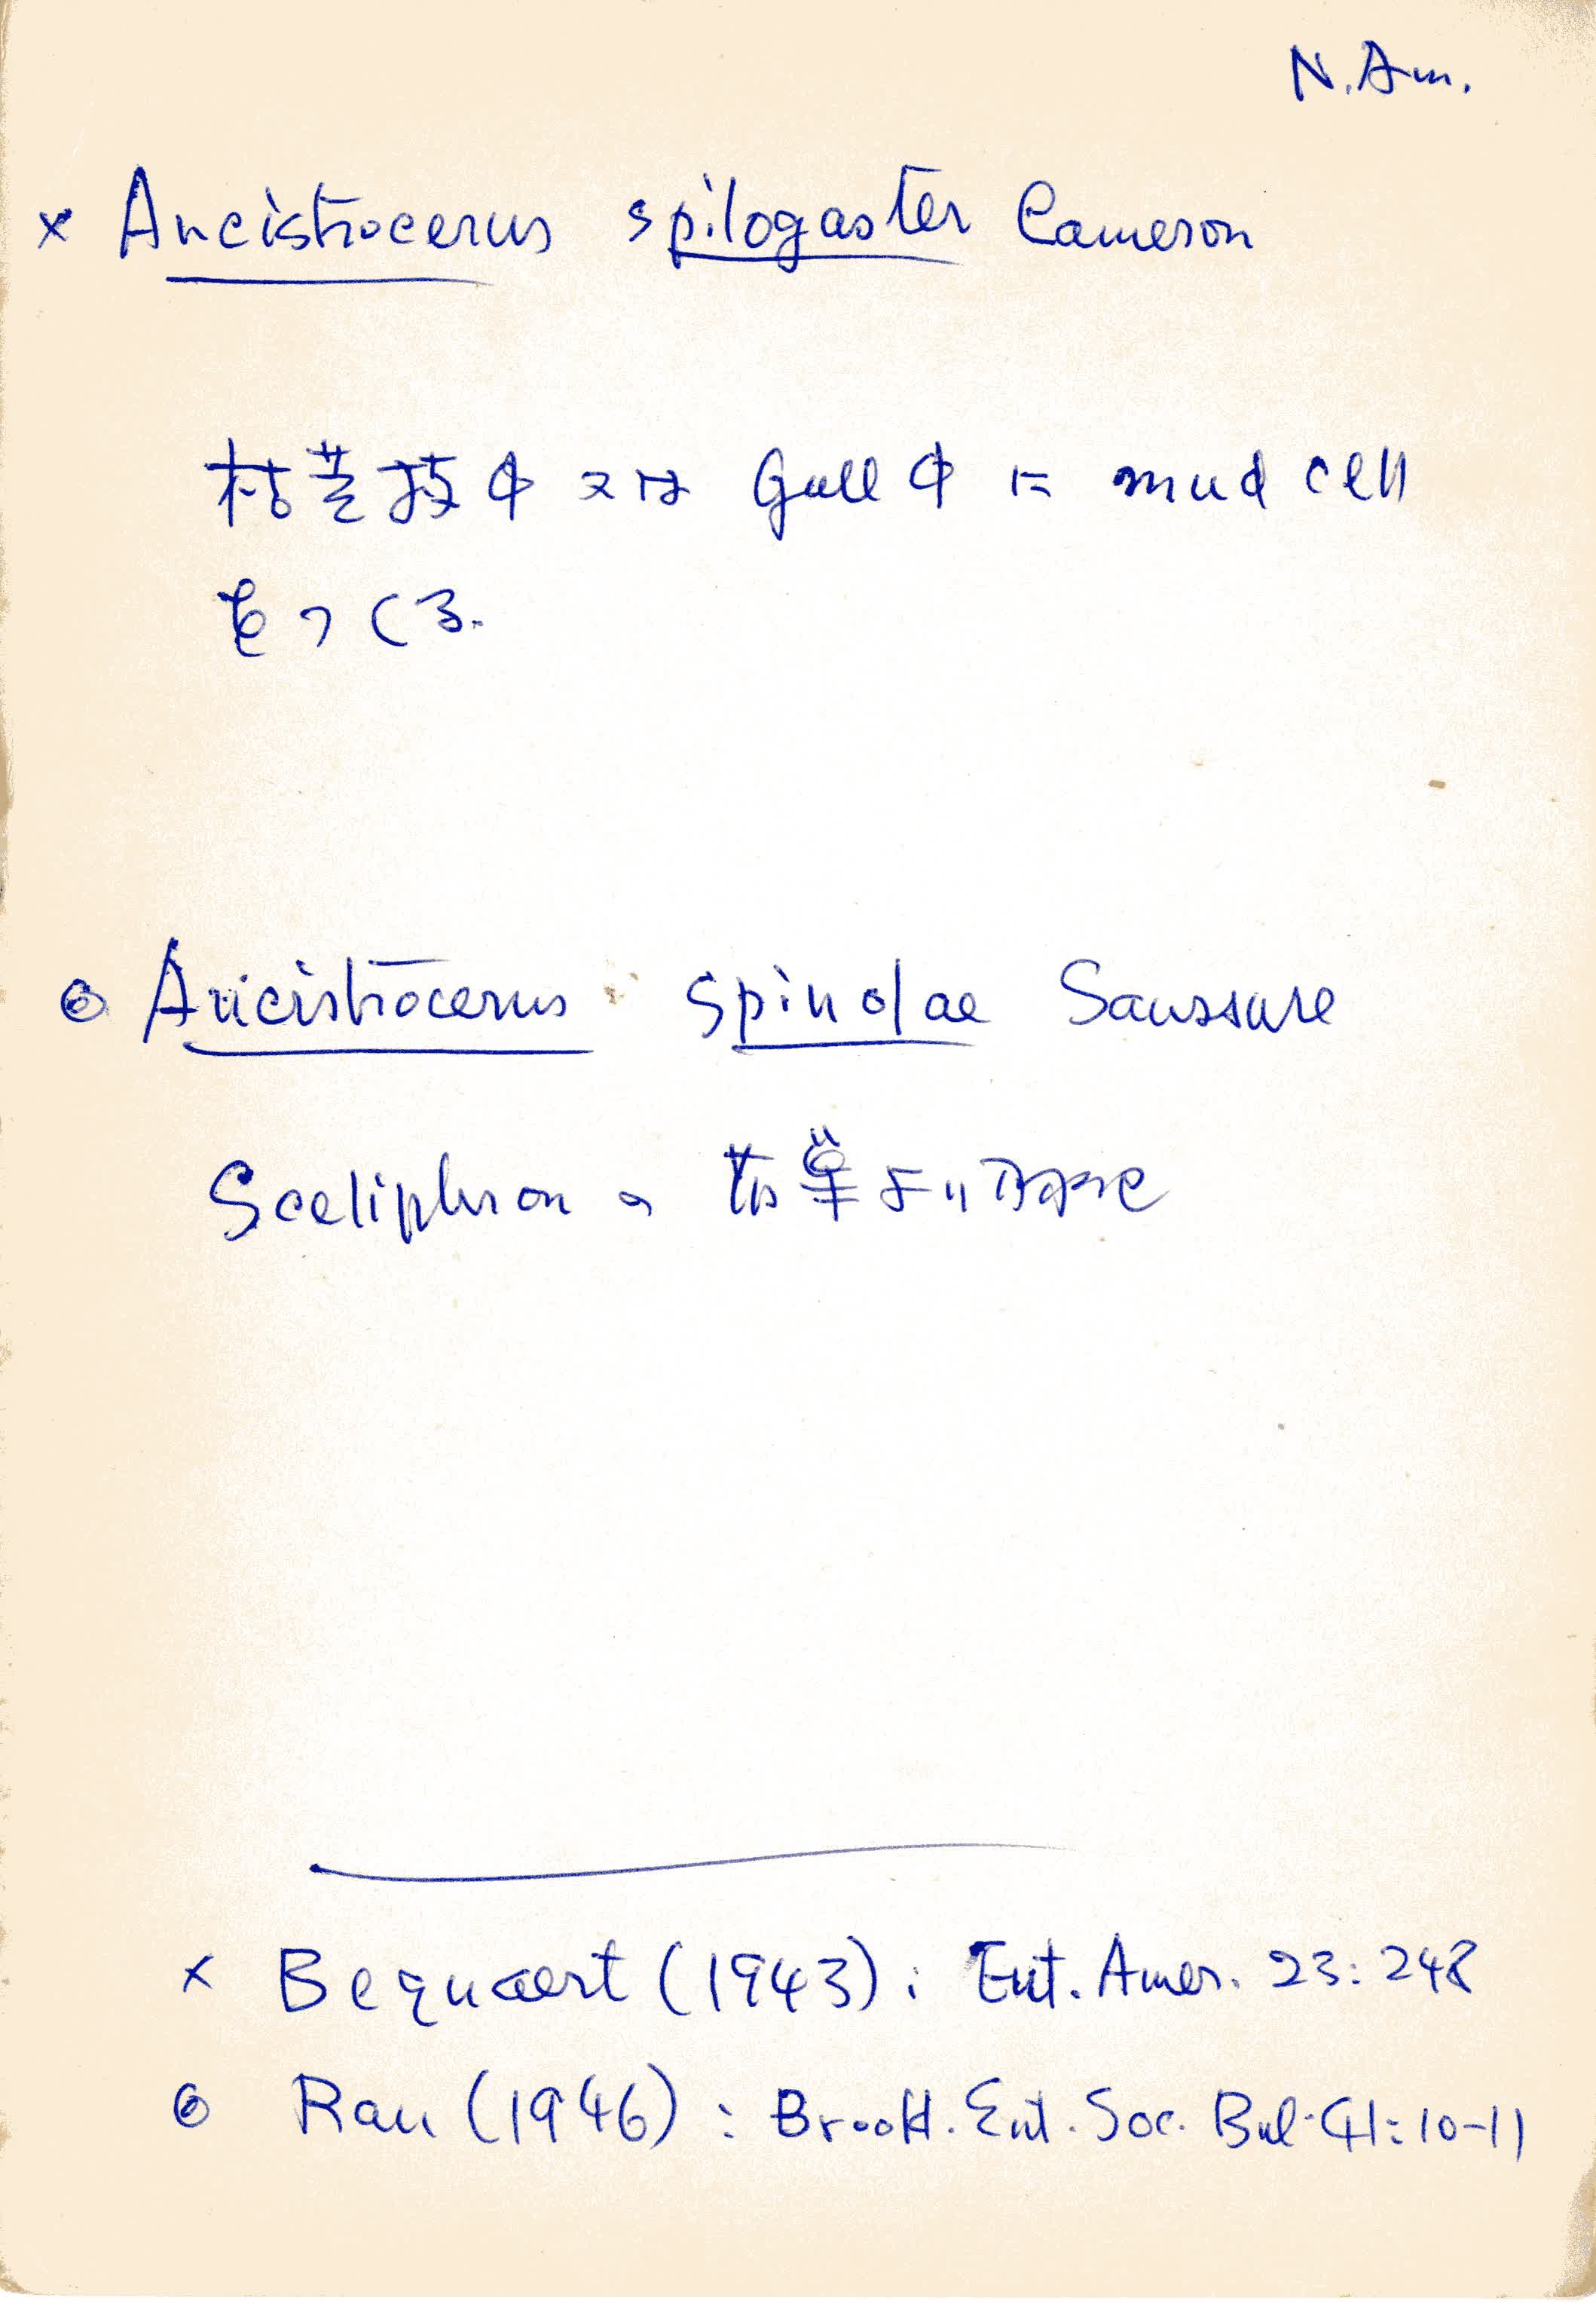 N. Am.
× Ancistrocerus spilogaster Cameron
枯茎枝中又は Gall中に mud cell
をつくる.
⊙ Ancistrocerus spinolae Saussure
Sceliphron の 古巣より羽脱
× Bequaert (1943): Ent. Amer. 23: 248
⊙ Rau (1946): Brookl. Ent. Soc. Bul. 41: 10-11